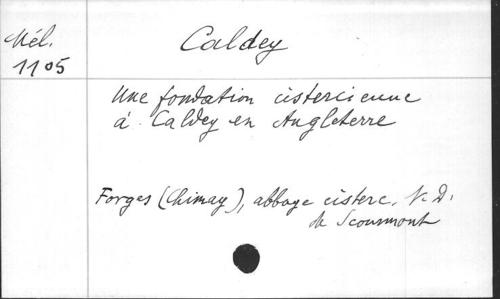 Mél.
1105
Caldey
Une fondation cistercienne
à Caldey en Angleterre
Forges (Chimay), abbaye cisterc. N. D.
de Scourmont